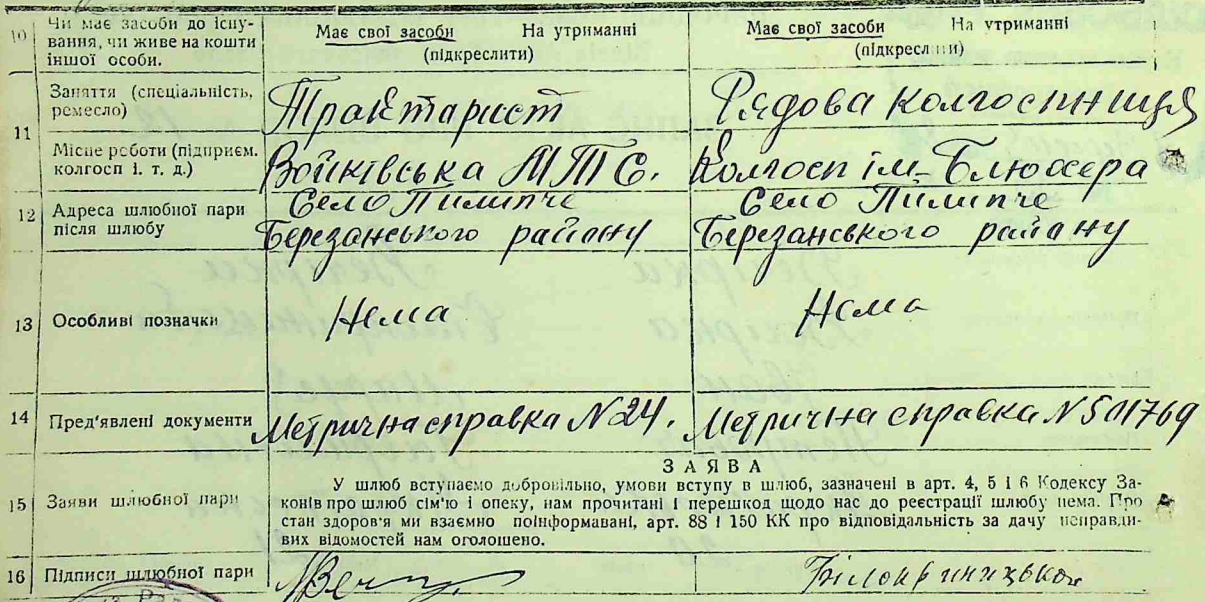 10 Чи має засоби до існування, чи живе на кошти іншої особи. Має свої засоби На утриманні (підкреслити) Має свої засоби На утриманні (підкреслити)
11 Заняття (спеціальність, ремесло) Трактарист Рядова колгоспниця
Місце роботи (підприєм. колгосп і. т. д.) Войківська МТС. Колгосп ім. Блюхера
12 Адреса шлюбної пари після шлюбу Село Пилипче Березанського району Село Пилипче Березанського району
13 Особливі позначки Нема Нема
14 Пред'явлені документи Метрична справка N 24. Метрична справка N 501769
ЗАЯВА
15 Заяви шлюбної пари У шлюб вступаємо добровільно, умови вступу в шлюб, зазначені в арт. 4, 5 і 6 Кодексу За-
конів про шлюб сім'ю і опеку, нам прочитані і перешкод щодо нас до реєстрації шлюбу нема. Про
стан здоров'я ми взаємно поінформавані, арт. 88 і 150 КК про відповідальність за дачу неправди-
вих відомостей нам оголошено.
16 Підписи шлюбної пари Білокриницька